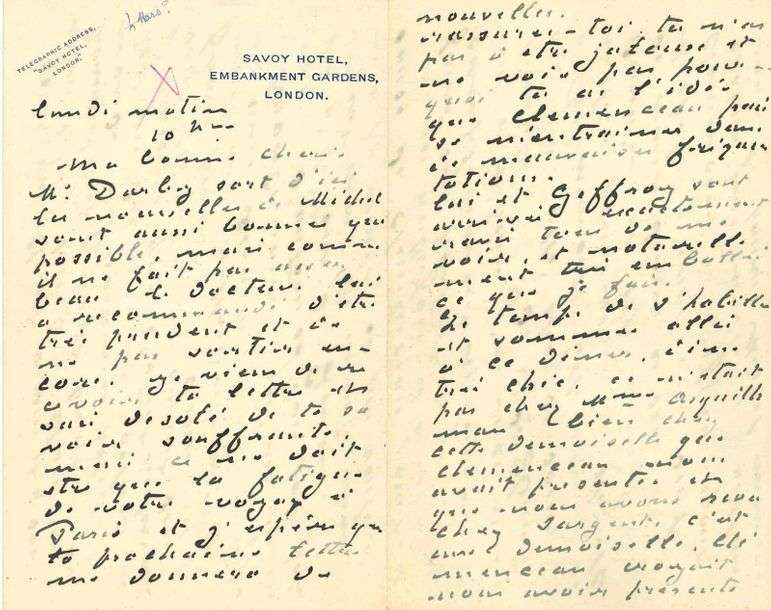 4 Mars?
TELEGRAPHIC ADDRESS,
"SAVOY HOTEL,
LONDON."
SAVOY HOTEL,
EMBANKMENT GARDENS,
LONDON.
lundi matin
10 h
Ma bonne cherie
Mr Darley sort d'ici
les nouvelles de Michel
sont aussi bonnes que
possible, mais comme
il ne fait pas assez
beau le docteur lui
a recommandé d'etre
tres prudent et de
ne pas sortir en-
core. Je viens de re
cevoir ta lettre et
suis desolé de te sa
voir souffrante
mais ce ne doit
etre que la fatigue
de votre voyage à
Paris et j'espère que
ta prochaine lettre
me donnera de
nouvelles.
rassure-toi, tu n'as
pas à etre jalouse et
ne vois pas pour-
quoi tu as l'idée
que Clemenceau puis
se m'entrainer dans
de mauvaises frequen
tations.
lui et Geffroy sont
arrivés exactement
ravis tous de me
voir, et naturelle
ment très emballés
ce que je fais.
le temps de s'habiller
et sommes allés
à ce diner, c'était
très chic, ce n'était
pas chez Mme
mais bien chez
cette demoiselle que
Clemenceau nous
avait presentée et
que nous avons revu
chez Sargent, c'est
une demoiselle. Cle
menceau croyait
nous avoir presenté